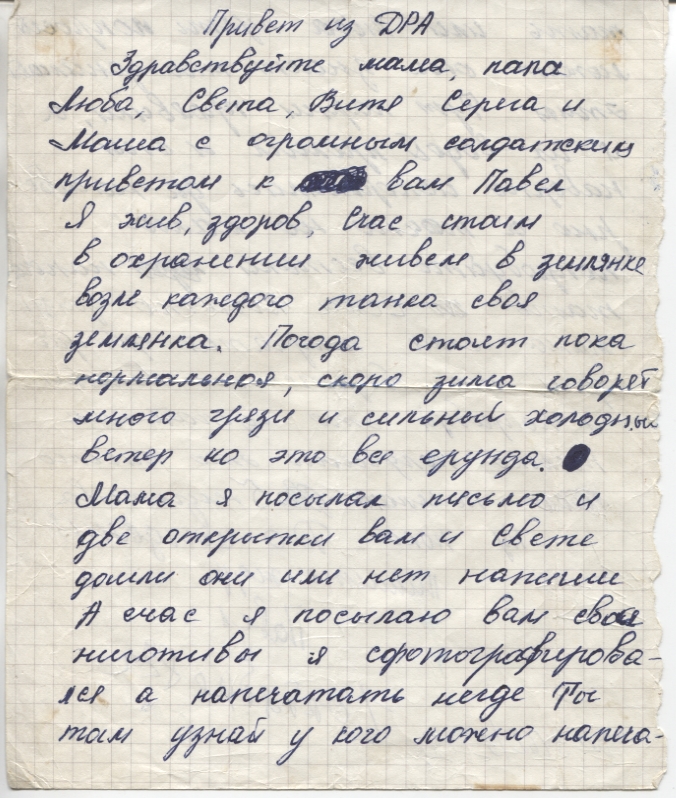 Привет из ДРА
Здравствуйте мама, папа
Люба, Света, Витя Серёга и
Маша с огромным солдатским
приветом к вам Павел
Я жив, здоров, счас стоим
в охранении живем в землянке
возле каждого танка своя
землянка. Погода стоит пока
нормальная, скоро зима говорят
много грязи и сильный холодный
ветер но это все ерунда.
Мама я посылал письмо и
две открытки вам и Свете
дошли они или нет напиши
А счас я посылаю вам свои
ниготивы я сфотографирова-
лся а напечатать негде Ты
там узнай у кого можно напеча-